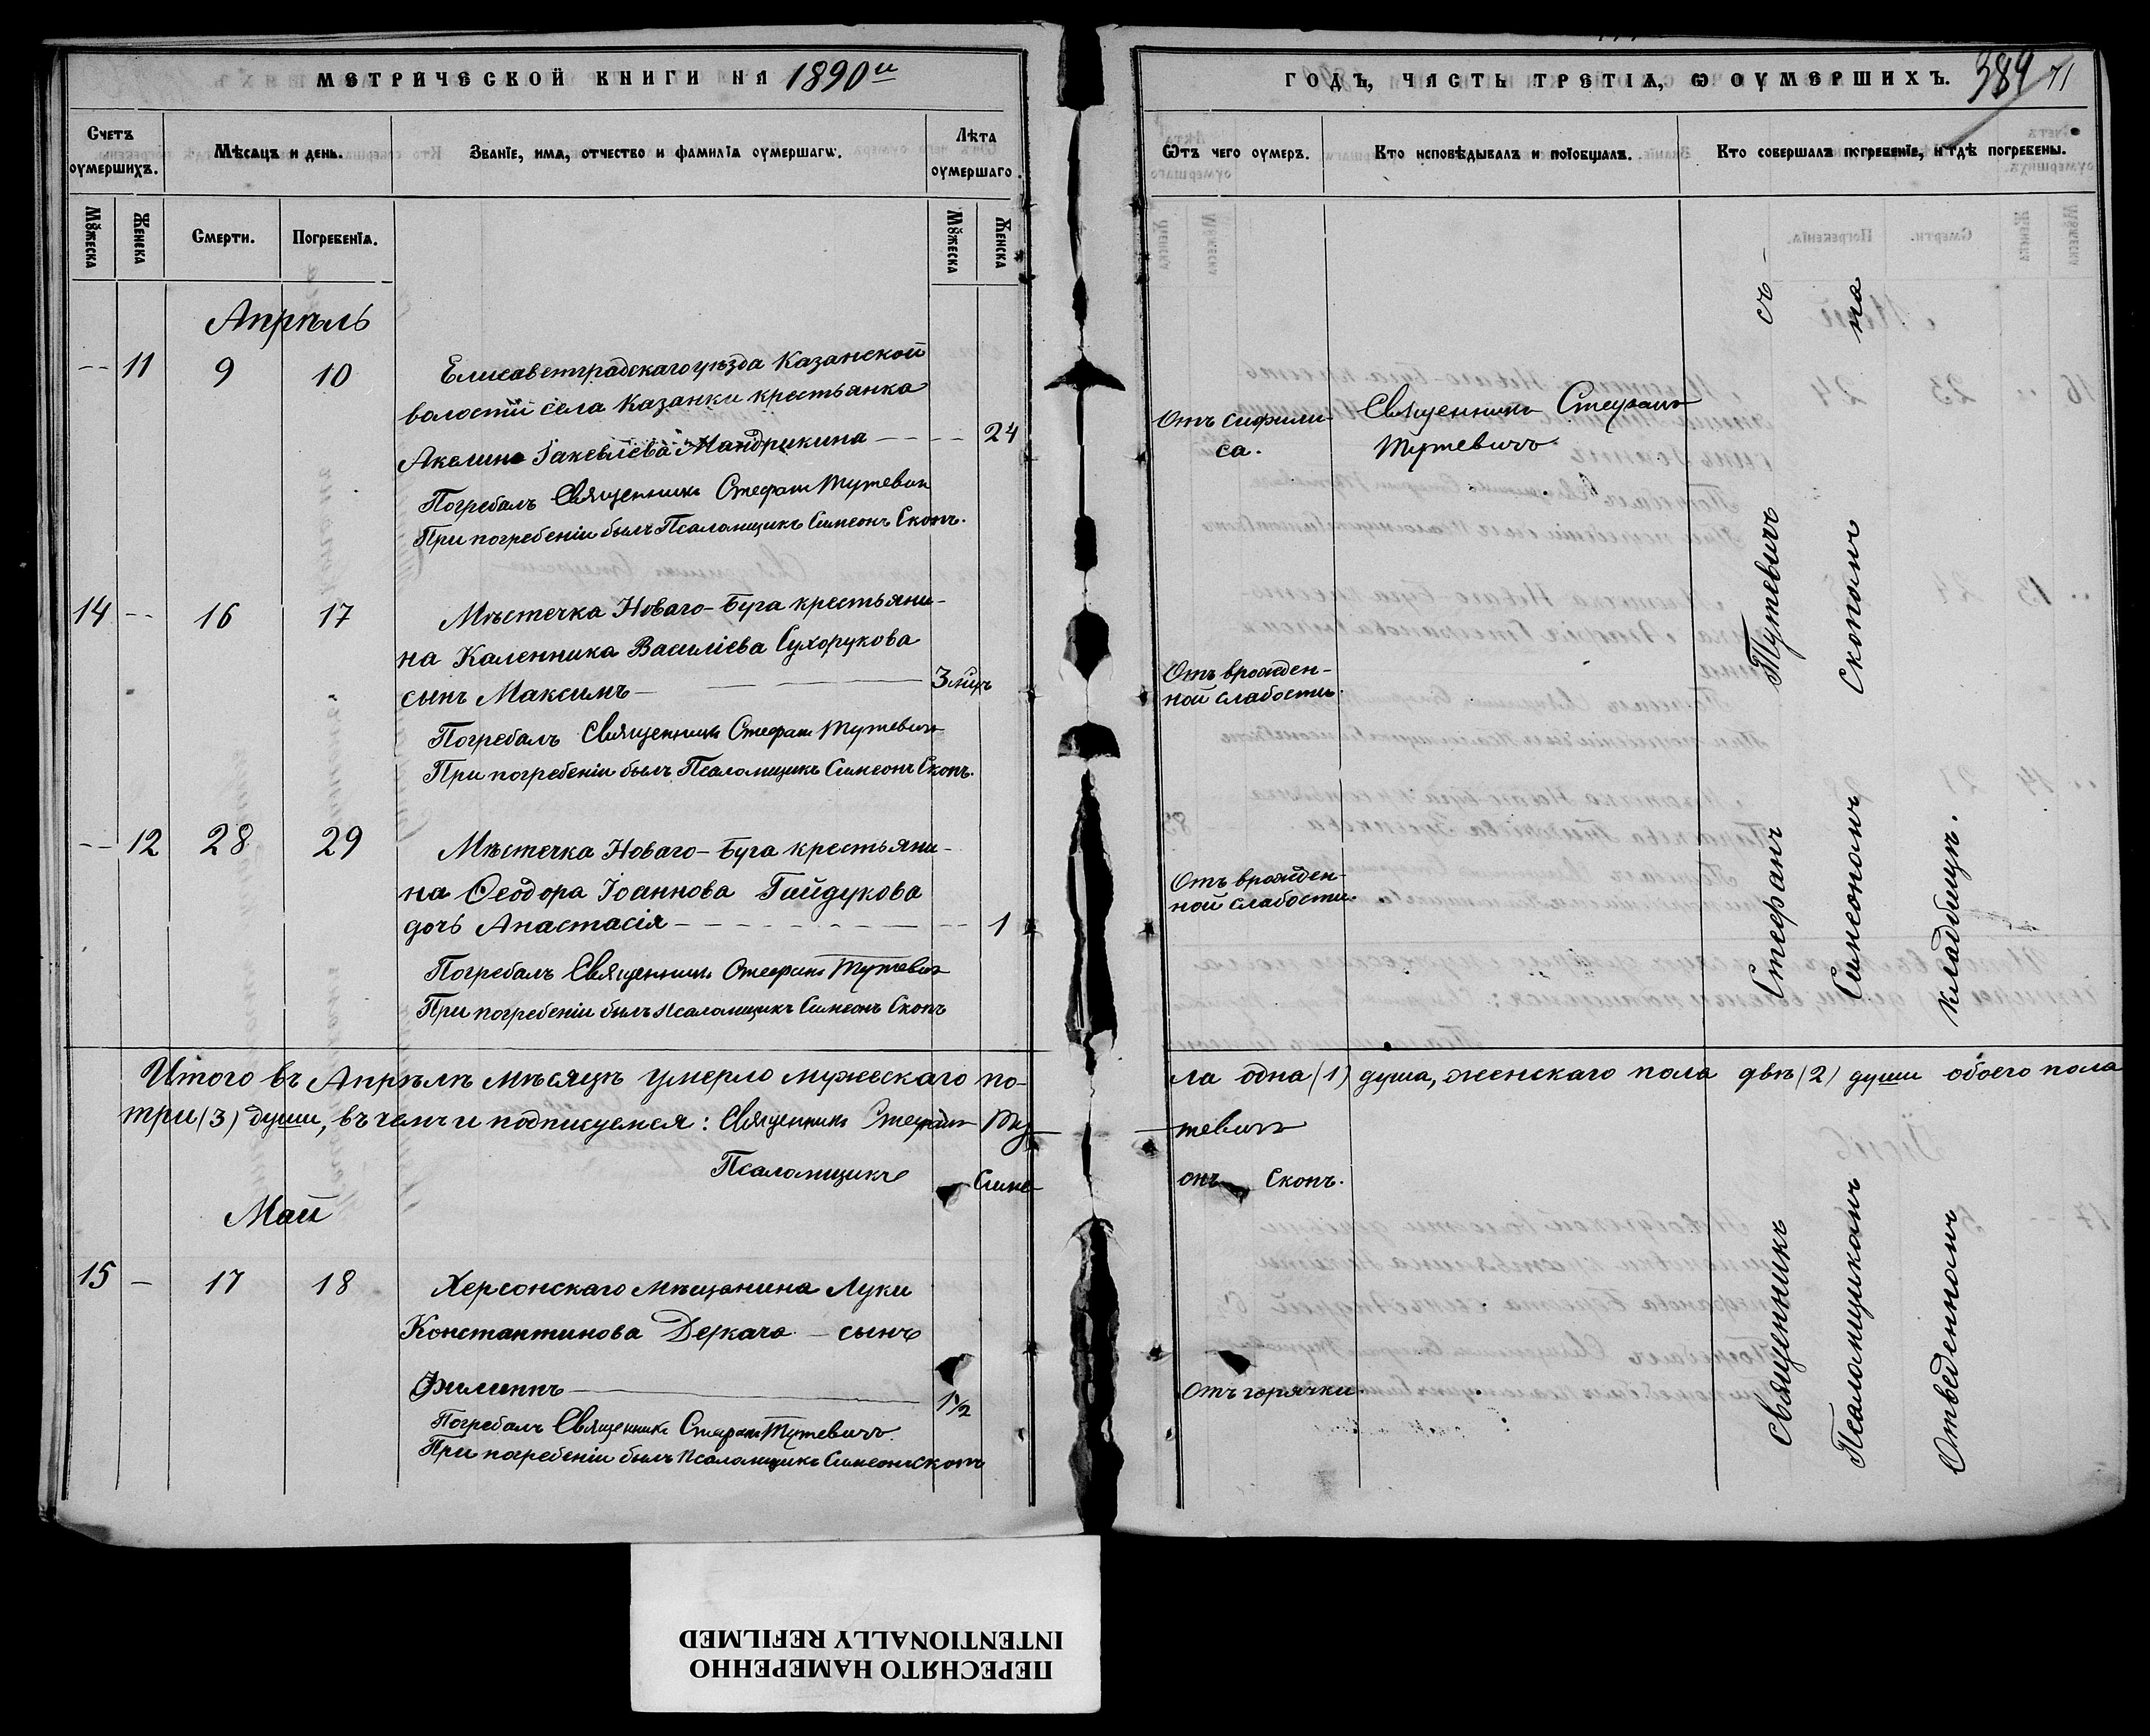 МЕТРИЧЕСКОЙ КНИГИ НА 1890й
Счетъ оумершихъ.
Мѣсяцъ и день.
Званїе, имѧ, отчество и фамилїѧ оумершагѡ.
Лѣта оумершаго.
Мꙋжеска
Женска
Смерти.
Погребенїѧ.
Мꙋжеска
Женска
Апрѣль
-- 11 9 10 Елисаветградскаго уѣзда Казанской
волости села Казанки крестьянка
Акелина Мандрикина -- -- 24
Погребалъ Священникъ Стефанъ Тутевичъ
При погребеніи былъ Псаломщикъ Симеонъ Скопъ.
14 -- 16 17 Мѣстечка Новаго-Буга крестьяни-
на Каленника Василіева Сухорукова
сынъ Максимъ — 3 мѣц
Погребалъ Священникъ Стефанъ Тутевичъ
При погребеніи былъ Псаломщикъ Симеонъ Скопъ.
-- 12 28 29 Мѣстечка Новаго-Буга крестьяни-
на Ѳеодора Іоаннова Гайдукова
дочь Анастасія -- 1
Погребалъ Священникъ Стефанъ Тутевичъ
При погребеніи былъ Псаломщикъ Симеонъ Скопъ
Итого въ Апрѣлѣ мѣсяцѣ умерло мужескаго по-
три (3) души, въ чемъ и подписуемся: Священникъ Стефанъ Ту
Псаломщикъ Симе
Май
15 — 17 18 Херсонскаго мѣщанина Луки
Константинова Деркача — сынъ
Филиппъ — 1½
Погребалъ Священникъ Стефанъ Тутевичъ.
При погребеніи былъ Псаломщикъ Симеонъ Скопъ
ГОДЪ, ЧАСТЬ ТРЕТІѦ, Ѡ ОУМЕРШИХЪ. 384 71
Ѿтъ чего оумеръ.
Кто исповѣдывалъ и пріобщалъ.
Кто совершалъ погребенїе, и гдѣ погребены.
Отъ сифили-
са.
Священникъ Стефанъ
Тутевичъ.
Отъ врожден-
ной слабости.
Отъ врожден-
ной слабости.
ла одна (1) душа, женскаго пола двѣ (2) души обоего пола
тевичъ
онъ Скопъ.
Отъ горячки.
Священникъ Стефанъ Тутевичъ съ –
Псаломщикомъ Симеономъ Скопомъ на
Отведенномъ кладбищѣ.
ПЕРЕСНЯТО НАМЕРЕННО
INTENTIONALLY REFILMED